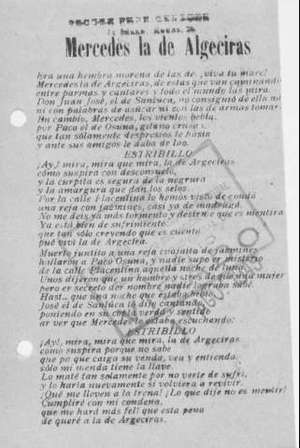 Mercedes la de Algeciras
Era una hembra morena de las de ¡viva tu mare!
Mercedes la de Algeciras, de estas que van caminando
entre parmas y cantares y todo el mundo las mira.
Don Juan José, el de Sanlúca, no consiguió de ella na
ni con palabras de asúcar ni con las de armas tomar.
En cambio, Mercedes, los vientos bebía,
por Paco el de Osuna, gitano
que tan sólamente despresios le hasía
y ante sus amigos le daba de loo.
ESTRIBILLO
¡Ay!, mira, mira que mira, la de Argeciras
cómo suspira con desconsuelo,
y la curpita es segura de la negrura
y la amargura que dan los selos.
Por la calle Plasentina lo hemos visto de
una reja con jazmines, casi ya de madrugá.
No me deis ya más tormento y desirme que es mentira
Ya está bien de sufrimiento,
que tan sólo creyendo que es cuento
pué viví la de Argecira.
Muerto juntito a una reja cuajaita de jazmines
hallaron a Paco Osuna, y nadie supo er misterio
de la calle Plasentina aquella noche de luna.
Unos dijeron que un hombre y otros de que una mujer
pero er secreto der nombre nadie lograba sabé
Hast.. que una noche que estaba
José el de Sanlúca lo dijo cantando,
poniendo en su
ar ver que Mercedes lo estaba escuchando:
ESTRIBILLO
¡Ay!, mira, mira que mira, la de Argeciras
como suspira porque no sabe
que pa que caiga su venda, vea y entienda
sólo mi menda tiene la llave.
Lo maté tan solamente por no verte de sufrí,
y lo haría nuevamente si volviera a revivir.
¡Qué me lleven a la trena! ¡Lo que dije no es mentir!
Cumpliré con mi condena,
que me hará más felí que esta pena
de queré a la de Argeciras.